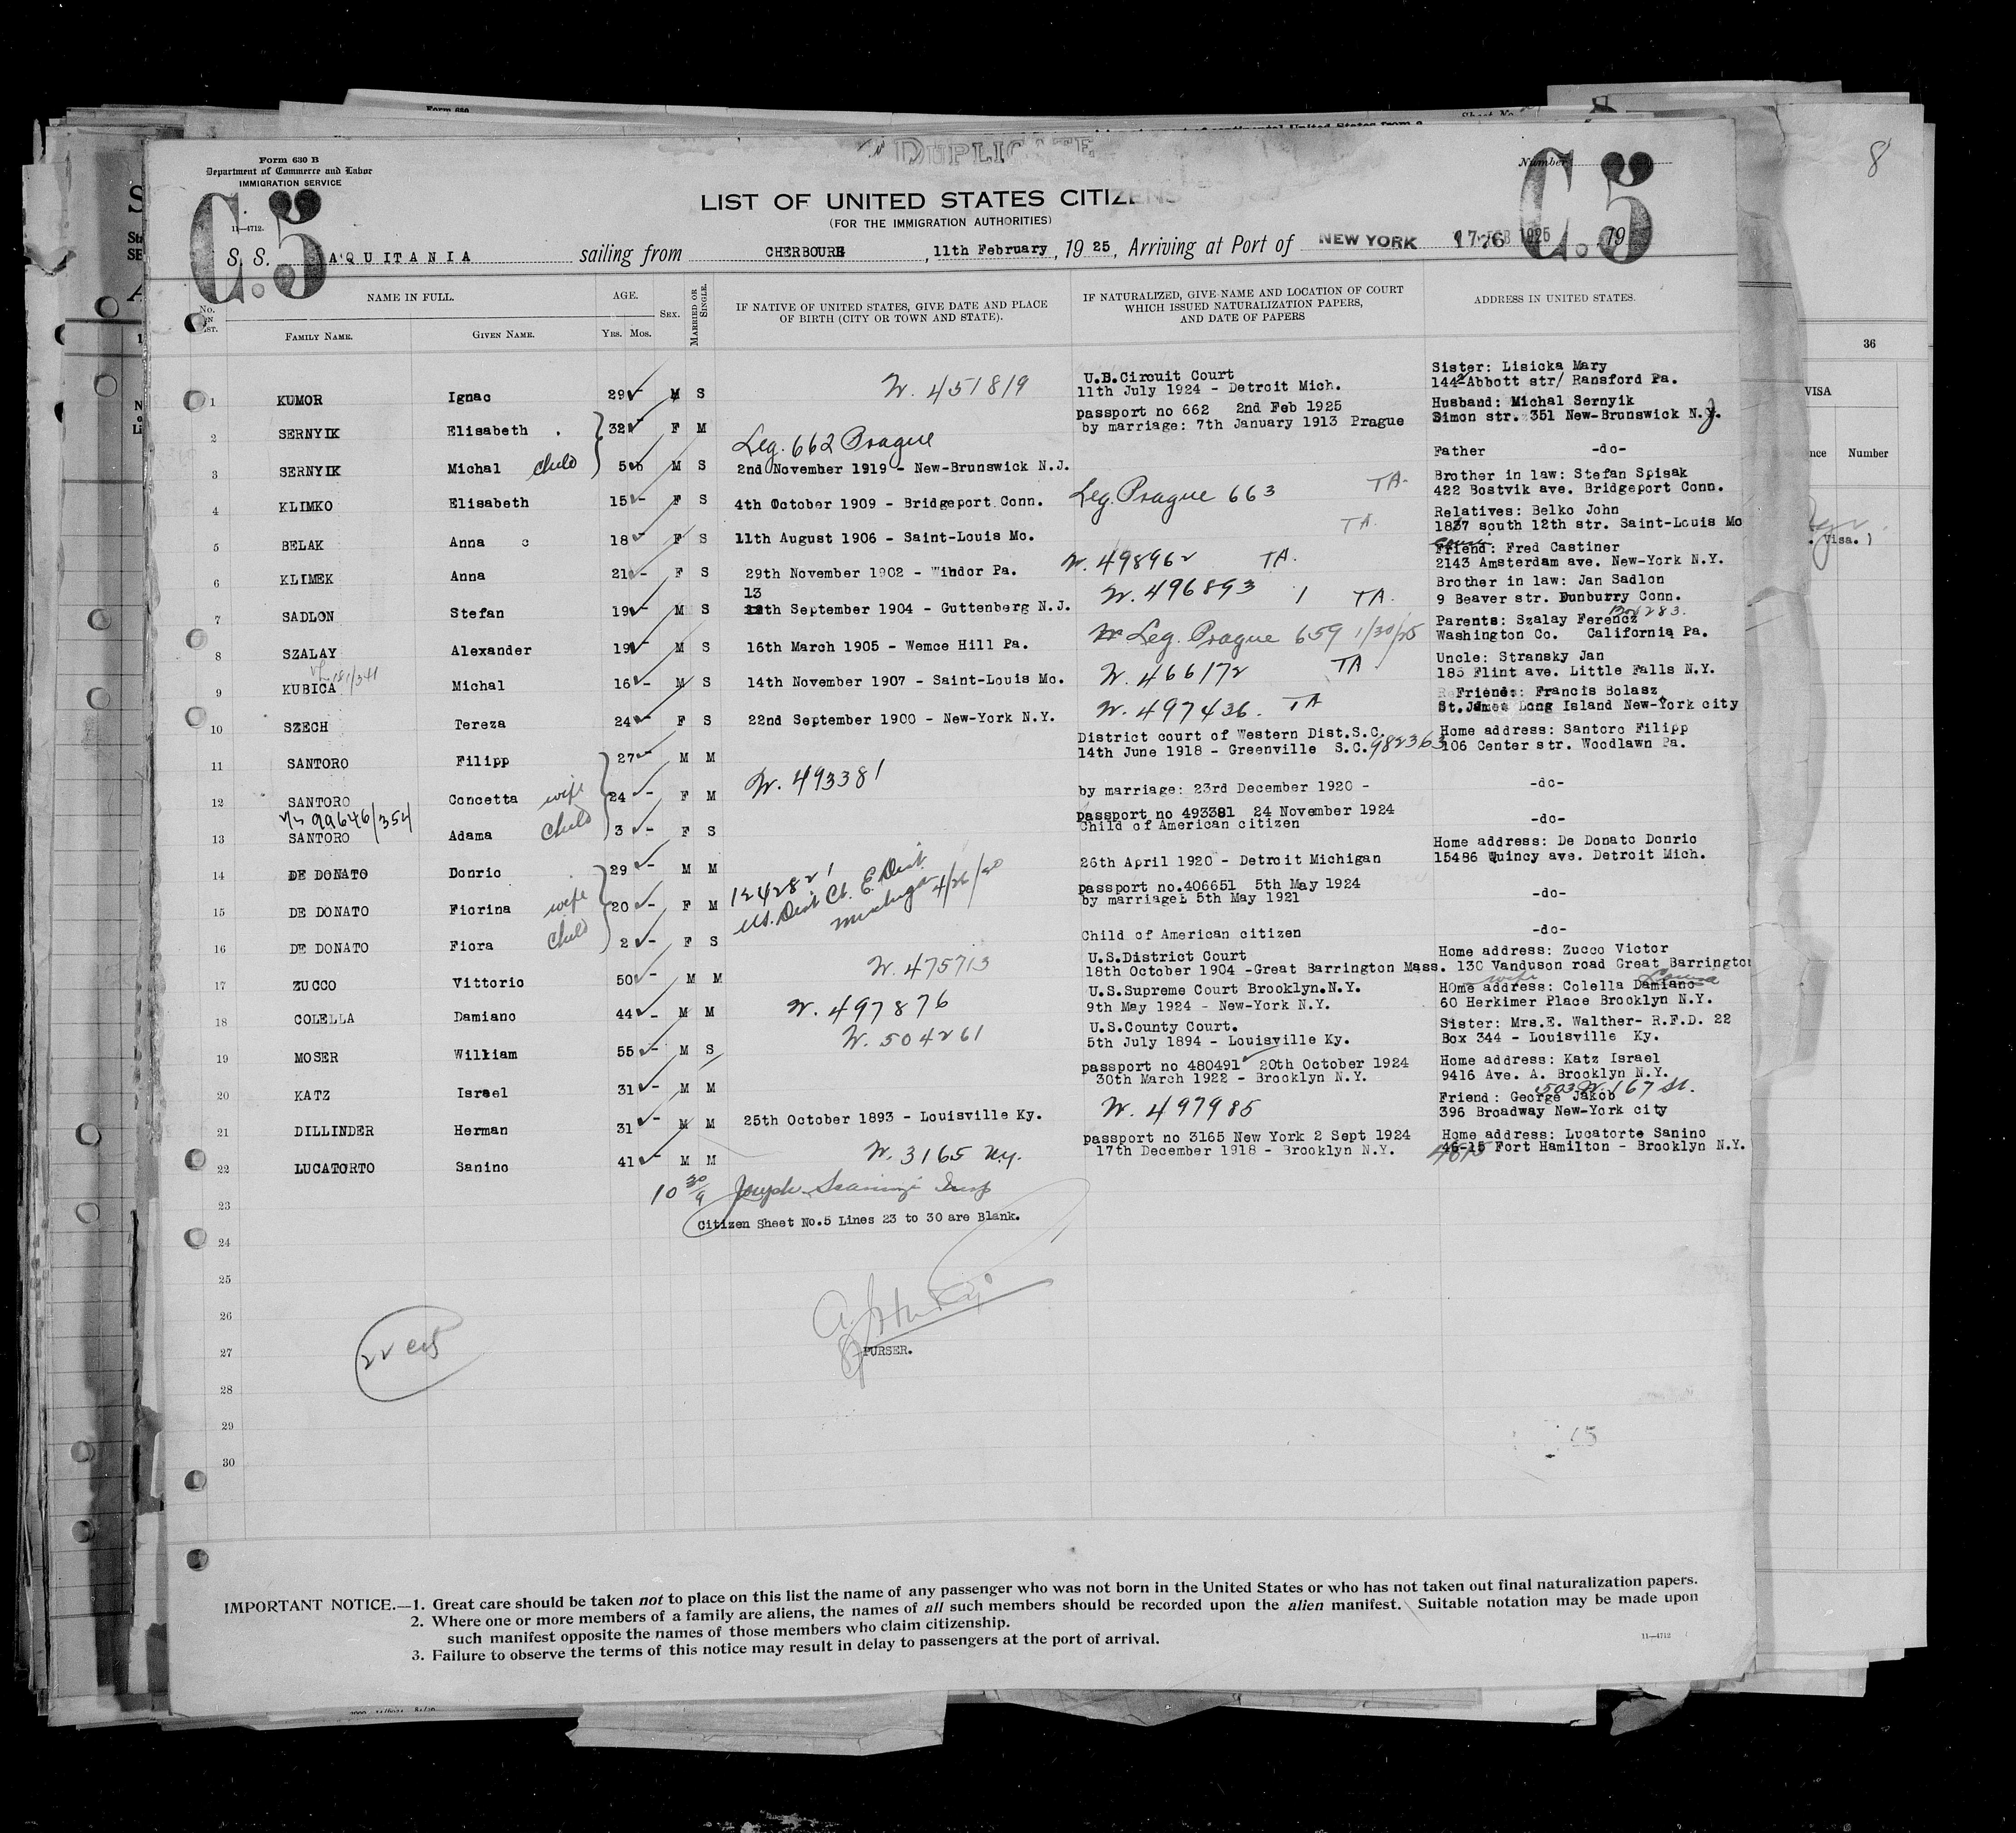 DUPLICATE
Form 630 B
Department of Commerce and Labor
IMMIGRATION SERVICE
11—4712.
C.5
Number
C.5
8
LIST OF UNITED STATES CITIZENS
(FOR THE IMMIGRATION AUTHORITIES)
S. S. AQUITANIA sailing from CHERBOURG, 11th February, 1925, Arriving at Port of NEW YORK FEB 1925 19
No. ON LIST. NAME IN FULL. AGE. SEX. MARRIED OR SINGLE. IF NATIVE OF UNITED STATES, GIVE DATE AND PLACE OF BIRTH (CITY OR TOWN AND STATE). IF NATURALIZED, GIVE NAME AND LOCATION OF COURT WHICH ISSUED NATURALIZATION PAPERS, AND DATE OF PAPERS ADDRESS IN UNITED STATES.
FAMILY NAME. GIVEN NAME. YRS. MOS.
36
VISA
Number
U.S.Circuit Court Sister: Lisicka Mary
1 KUMOR Ignac 29 M S W. 451819 11th July 1924 - Detroit Mich. 1442 Abbott str/ Ransford Pa.
passport no 662 2nd Feb 1925 Husband: Michal Sernyik
2 SERNYIK Elisabeth 32 F M Leg. 662 Prague by marriage: 7th January 1913 Prague Simon str. 351 New-Brunswick N.J.
3 SERNYIK Michal Child 5 M S 2nd November 1919 - New-Brunswick N.J. Father -do-
Brother in law: Stefan Spisak
4 KLIMKO Elisabeth 15 F S 4th October 1909 - Bridgeport Conn. Leg. Prague 663 TA. 422 Bostvik ave. Bridgeport Conn.
Relatives: Belko John
5 BELAK Anna 18 F S 11th August 1906 - Saint-Louis Mo. TA. 1837 south 12th str. Saint-Louis Mo
Friend: Fred Castiner
6 KLIMEK Anna 21 F S 29th November 1902 - Windor Pa. W. 498962 TA. 2143 Amsterdam ave. New-York N.Y.
13 Brother in law: Jan Sadlon
7 SADLON Stefan 19 M S th September 1904 - Guttenberg N.J. W. 496893 1 TA. 9 Beaver str. Dunburry Conn.
Parents: Szalay Ferencz Box 283.
8 SZALAY Alexander 19 M S 16th March 1905 - Wemce Hill Pa. Leg. Prague 659 1/30/25 Washington Co. California Pa.
Uncle: Stransky Jan
9 KUBICA Michal 16 M S 14th November 1907 - Saint-Louis Mo. W. 466172 TA. 185 Flint ave. Little Falls N.Y.
Friend: Francis Bolasz
10 SZECH Tereza 24 F S 22nd September 1900 - New-York N.Y. W. 497436. TA St.James Long Island New-York city
District court of Western Dist.S.C. Home address: Santoro Filipp
11 SANTORO Filipp 27 M M 14th June 1918 - Greenville S.C. 982363 106 Center str. Woodlawn Pa.
12 SANTORO Concetta wife 24 F M W. 493381 by marriage: 23rd December 1920 - -do-
99646/354 passport no 493381 24 November 1924
13 SANTORO Adama Child 3 F S Child of American citizen -do-
Home address: De Donato Donric
14 DE DONATO Donric 29 M M 1242821 26th April 1920 - Detroit Michigan 15486 Quincy ave. Detroit Mich.
U.S. Dist Ct. E. Dist Michigan 4/26/20
passport no.406651 5th May 1924
15 DE DONATO Fiorina wife 20 F M by marriage: 5th May 1921 -do-
16 DE DONATO Fiora Child 2 F S Child of American citizen -do-
U.S.District Court Home address: Zucco Victor
17 ZUCCO Vittorio 50 M M W. 475713 18th October 1904 -Great Barrington Mass. 130 Vanduson road Great Barrington
U.S.Supreme Court Brooklyn.N.Y. wife HOme address: Colella Damiano
18 COLELLA Damiano 44 M M W. 497876 9th May 1924 - New-York N.Y. 60 Herkimer Place Brooklyn N.Y.
U.S.County Court. Sister: Mrs.E. Walther- R.F.D. 22
19 MOSER William 55 M S W. 504261 5th July 1894 - Louisville Ky. Box 344 - Louisville Ky.
passport no 480491 20th October 1924 Home address: Katz Israel
20 KATZ Israel 31 M M 30th March 1922 - Brooklyn N.Y. 9416 Ave. A. Brooklyn N.Y.
503 W. 167 St.
Friend: George Jakob
21 DILLINDER Herman 31 M M 25th October 1893 - Louisville Ky. W. 497985 396 Broadway New-York city
passport no 3165 New York 2 Sept 1924 Home address: Lucatorto Sanino
22 LUCATORTO Sanino 41 M M W. 3165 N.Y. 17th December 1918 - Brooklyn N.Y. 46-15 Fort Hamilton - Brooklyn N.Y.
4615
23 Joseph Insp
Citizen Sheet No.5 Lines 23 to 30 are Blank.
24
25
26
27 PURSER.
28
29
30
IMPORTANT NOTICE.—1. Great care should be taken not to place on this list the name of any passenger who was not born in the United States or who has not taken out final naturalization papers.
2. Where one or more members of a family are aliens, the names of all such members should be recorded upon the alien manifest. Suitable notation may be made upon
such manifest opposite the names of those members who claim citizenship.
3. Failure to observe the terms of this notice may result in delay to passengers at the port of arrival.
11—4712